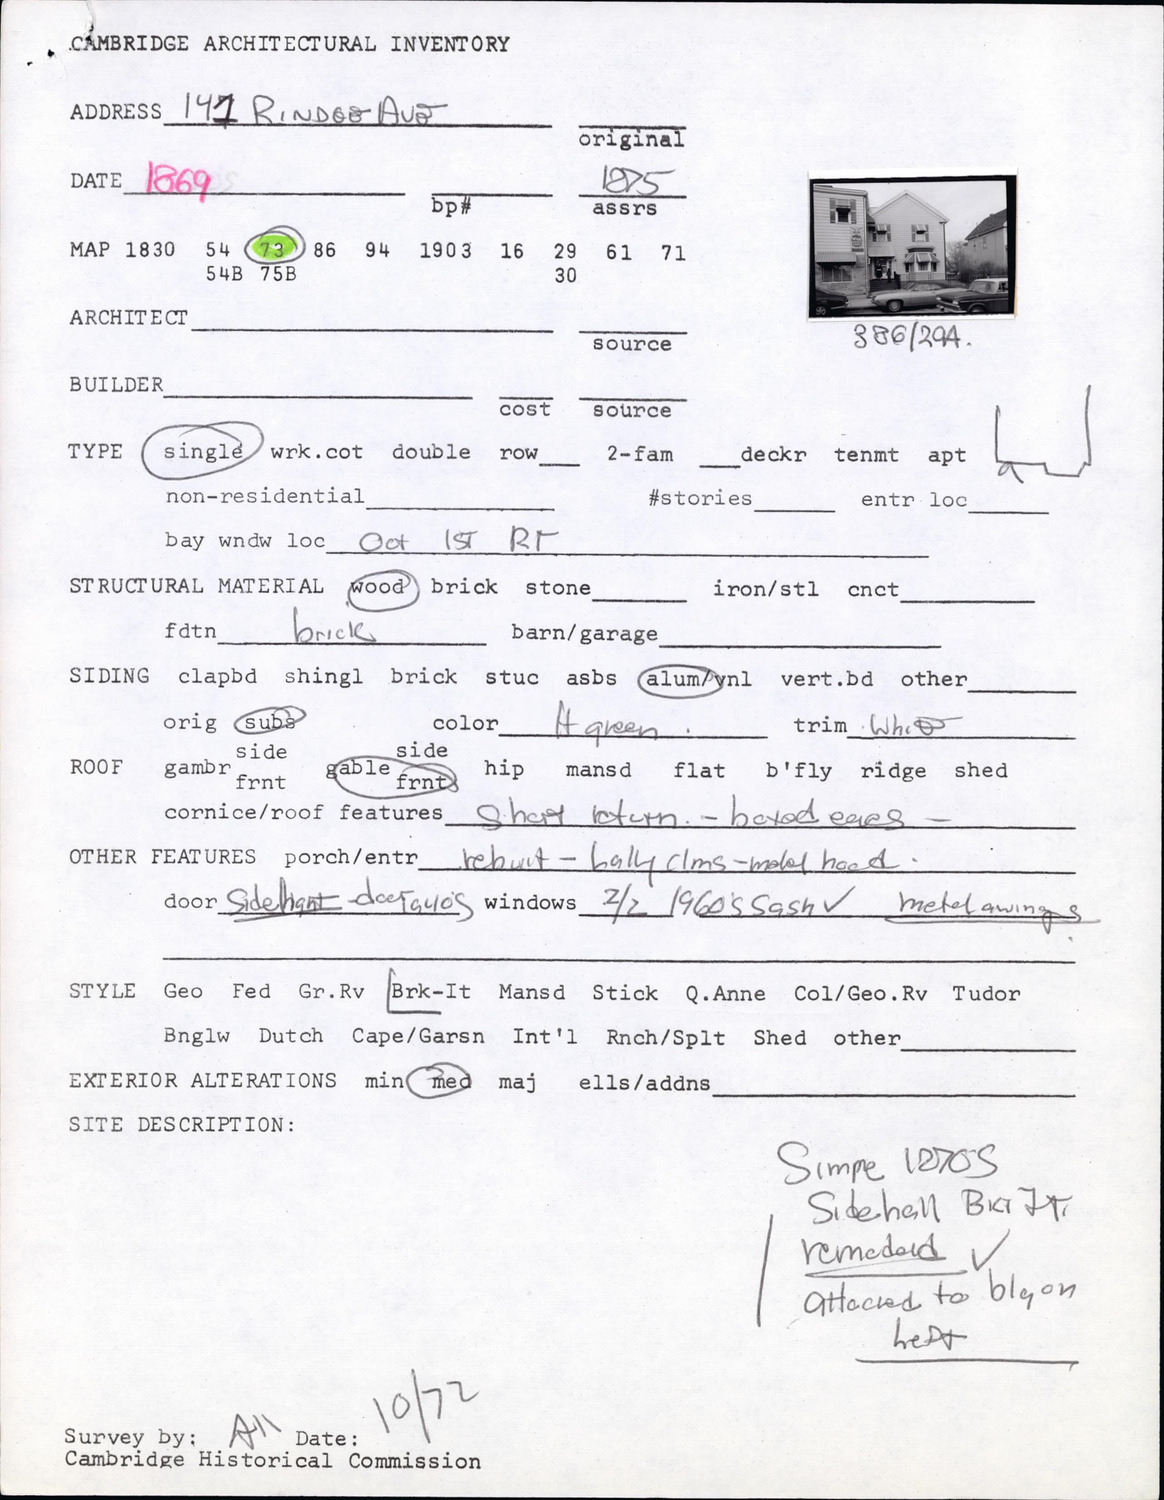 CAMBRIDGE ARCHITECTURAL INVENTORY
ADDRESS 147 RINDGE AVE
original
DATE 1869 1875
bp# assrs
MAP 1830 54 73 86 94 1903 16 29 61 71
54B 75B 30
ARCHITECT
source
386/29A.
BUILDER
cost source
TYPE single wrk.cot double row 2-fam deckr tenmt apt
non-residential #stories entr loc
bay wndw loc Oct 1ST RT
STRUCTURAL MATERIAL wood brick stone iron/stl cnct
fdtn brick barn/garage
SIDING clapbd shingl brick stuc asbs alum/vnl vert.bd other
orig subs color lt green. trim White
side side
ROOF gambr gable hip mansd flat b'fly ridge shed
frnt frnt
cornice/roof features Short return. - boxed eaves -
OTHER FEATURES porch/entr rebuilt - - metal hood.
door Sidelight - windows 2/2 1960'S Sash ✓ metal awings
STYLE Geo Fed Gr.Rv Brk-It Mansd Stick Q.Anne Col/Geo.Rv Tudor
Bnglw Dutch Cape/Garsn Int'l Rnch/Splt Shed other
EXTERIOR ALTERATIONS min med maj ells/addns
SITE DESCRIPTION:
Simpe 1870S
Sidehall Brkt It.
remodeld ✓
attached to bldg on
left
Survey by: Date: 10/72
Cambridge Historical Commission